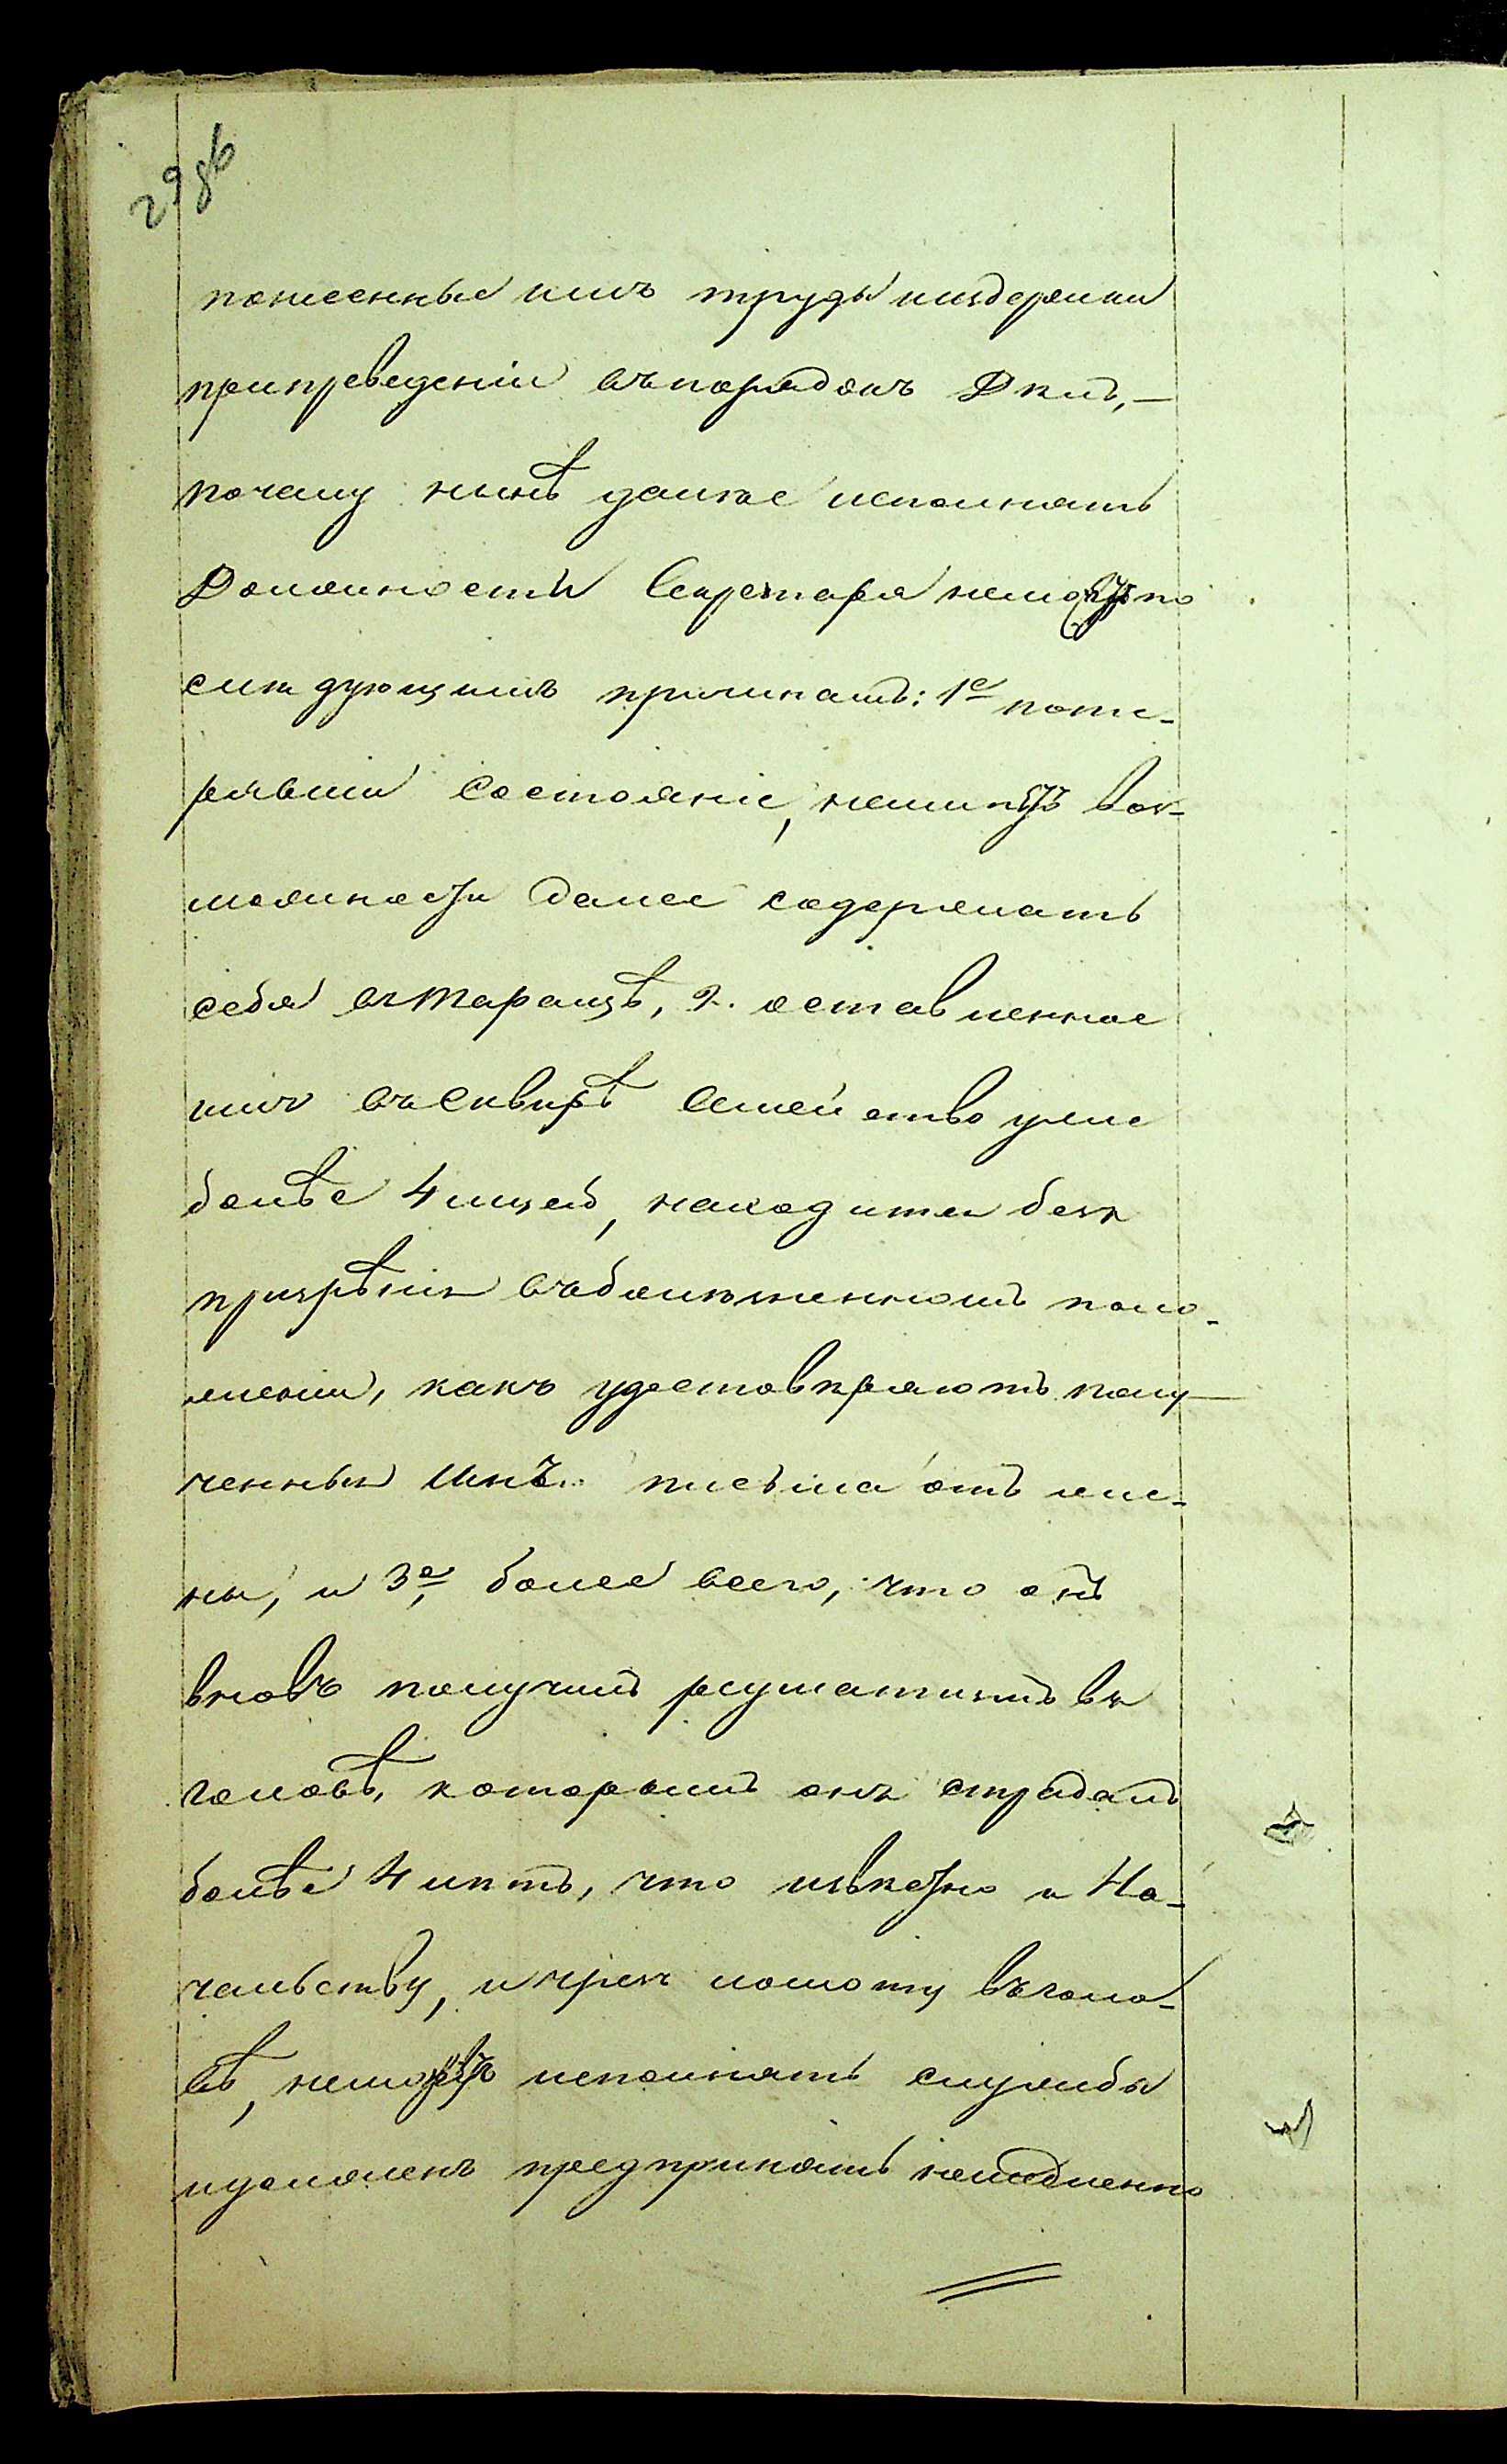 29 об
понесенные имъ труды и издержки
при приведеніи въ порядокъ Дѣлъ, —
почему нынѣ далее исполнять
Должности Секретаря неможетъ по
слѣдующимъ причинамъ: 1е поте-
рявши состояніе, неимѣетъ воз-
можности далее содержать
себя въ Таращѣ, 2. оставленное
имъ въ Сквирѣ семейство уже
болѣе 4 мцевъ, находится безъ
призрѣнія въ болѣзненномъ поло-
женіи, какъ удостовѣряютъ полу-
ченныя имъ письма отъ же-
ны, и 3е, более всего, что онъ
вновь получилъ ревматизмъ въ
головѣ, которымъ онъ страдалъ
болѣе 4 лѣтъ, что извѣстно и На-
чальству, и чрезъ ломоту въ голо-
вѣ, неможетъ исполнять службы
и долженъ предпринять немедленно